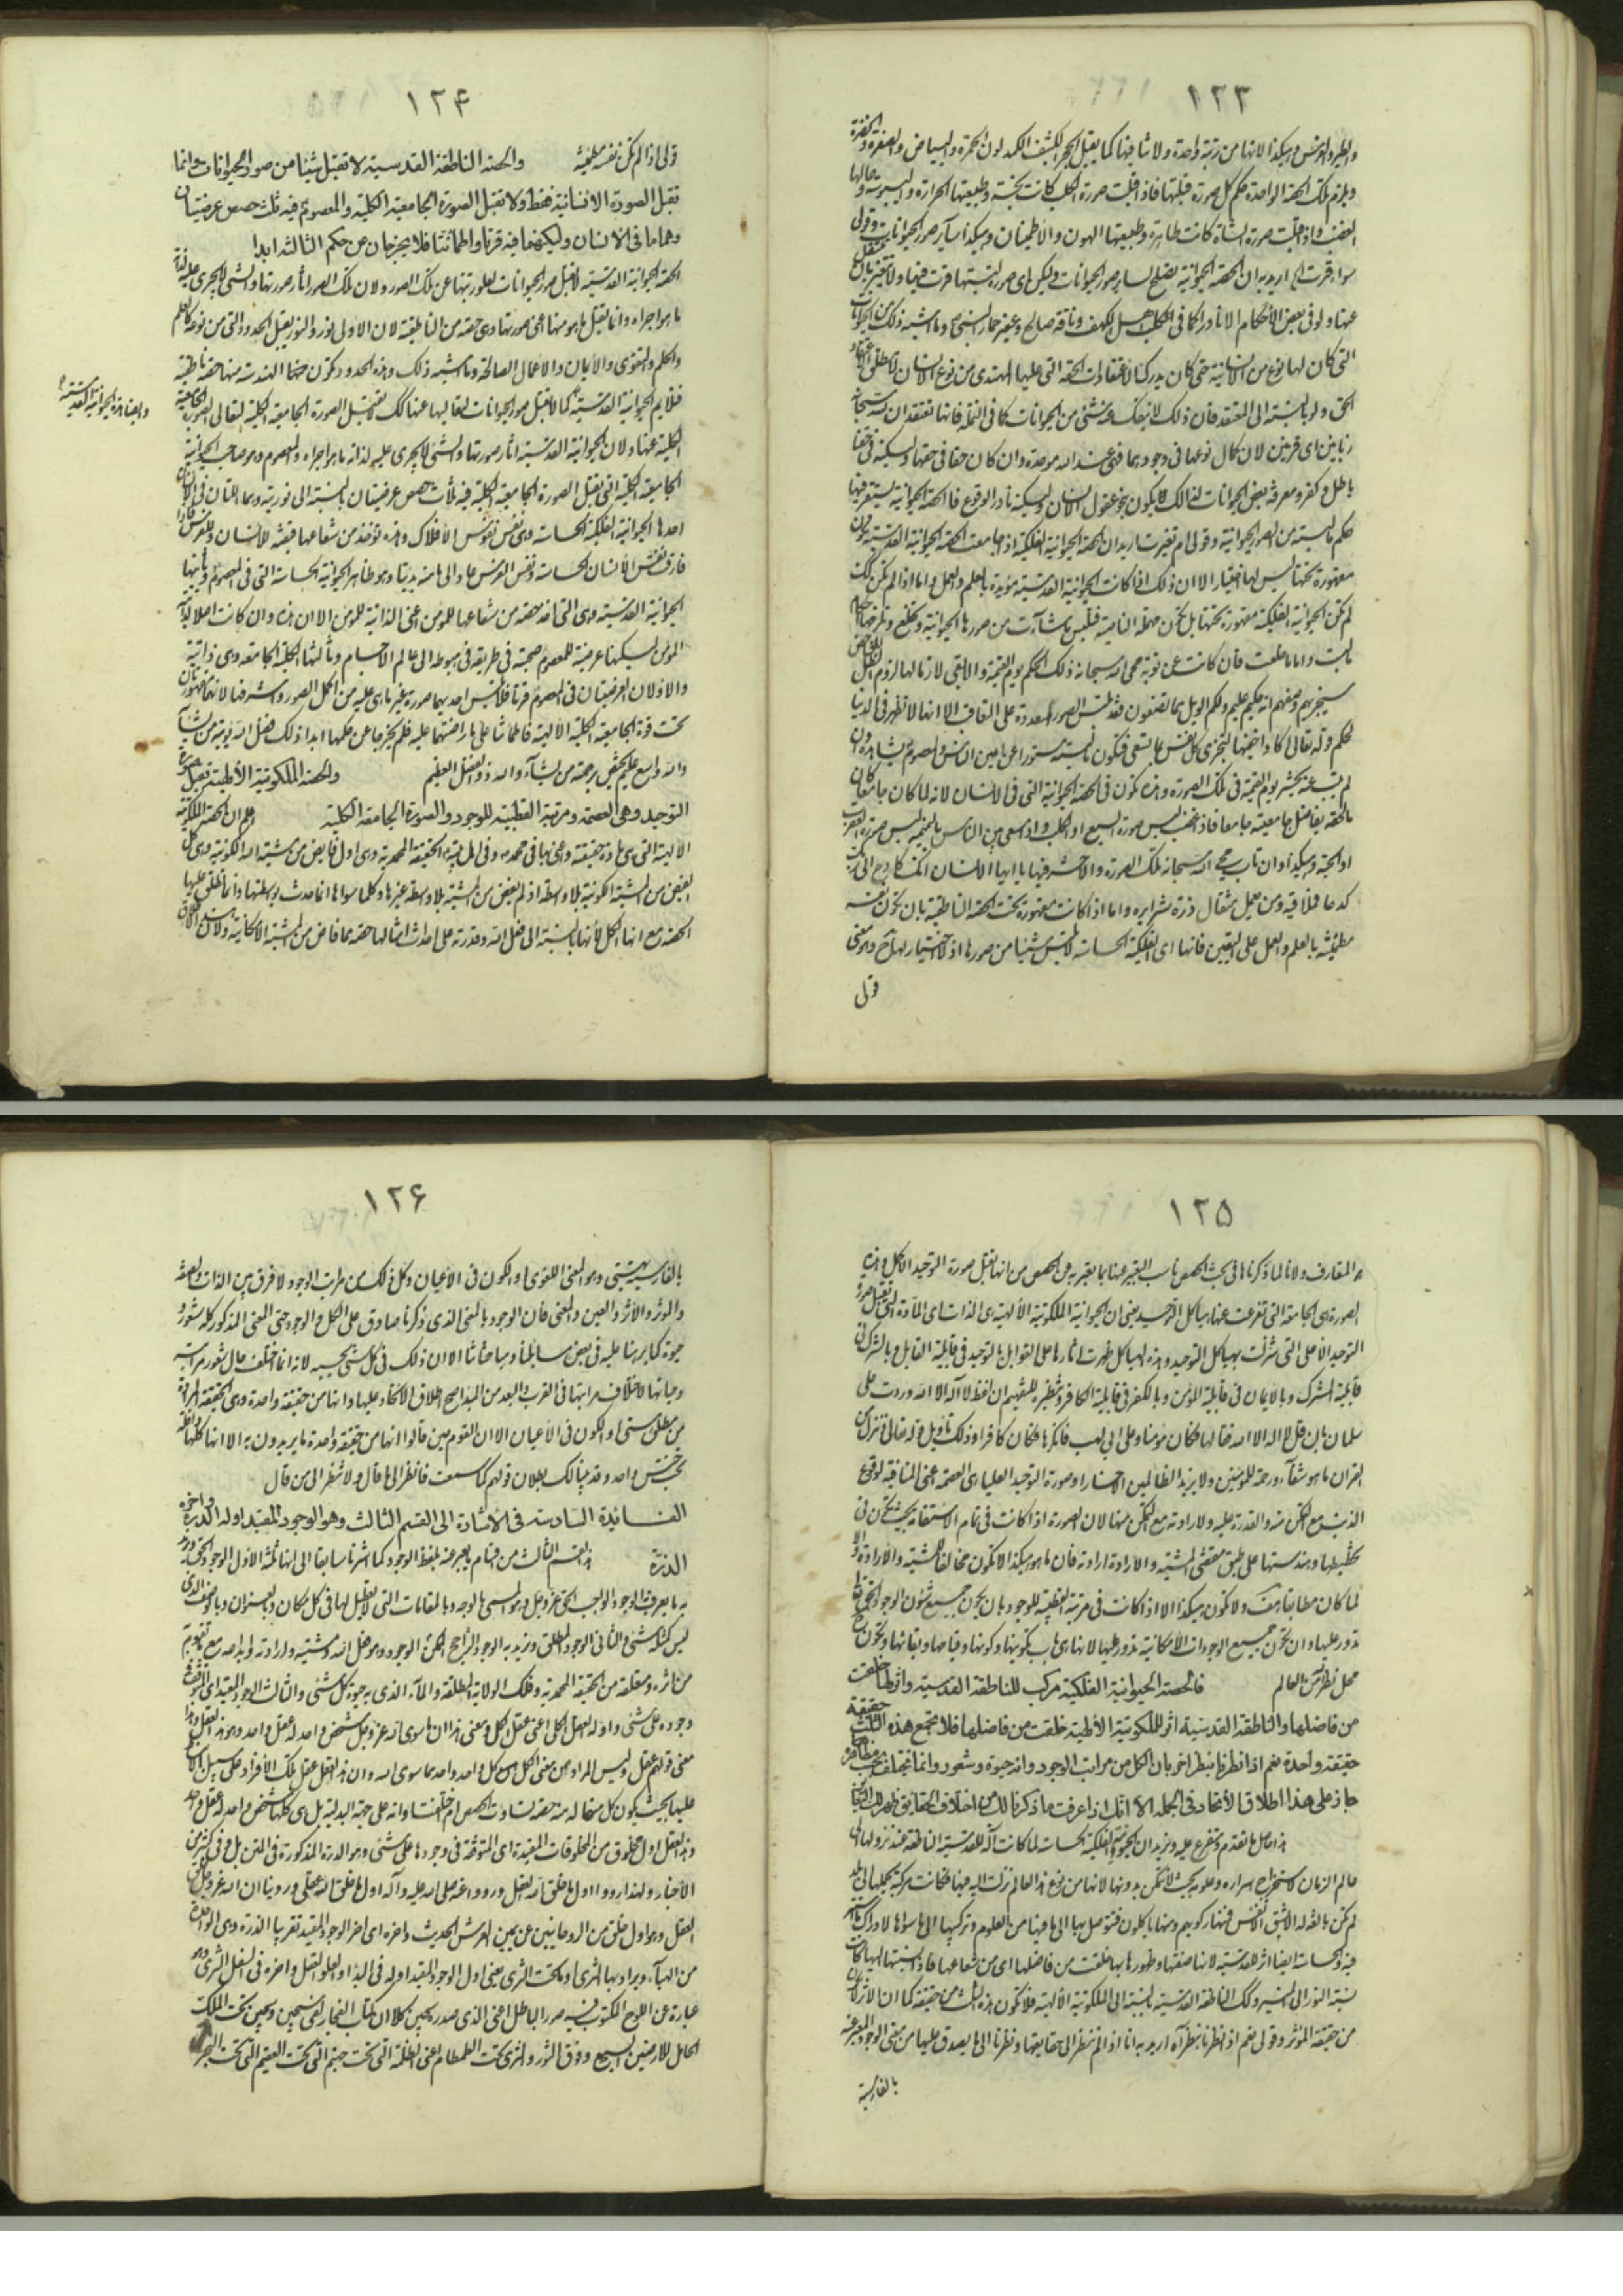 ١٢٣
والطير والفرس وهكذا لانها من رتبة واحدة ولا تنافى فيها كما يقبل الحجر الكثيف الكمد لون الحمرة والبياض والصفرة والخضرة
ويلزم تلك الحصة الواحدة حكم كل صورة قبلتها فاذا قبلت صورة الكلب كانت نجسة وطبيعتها الحرارة واليبوسة وحالها
الغضب واذا قبلت صورة الشاة كانت طاهرة وطبيعتها الهون والاطمينان وهكذا سآير صور الحيوانات وقولى
سواء قرت اريد به ان الحصة الحيوانية تصلح لساير صور الحيوانات وليس اى صورة لبستها قرت فيها ولا تتغير بان تنتقل
عنها ولو فى بعض الأحكام الا نادرا كما فى كلب اهل الكهف وناقة صالح وعفير حمار النبى ص وما اشبه ذلك من الحيوانات
التى كان لها نوع من الانسانية حتى كان يدرك اعتقادات الحصة التى عليها المهتدى من نوع الانسان
الحق ولو بالنسبة الى المعتقد فان ذلك لا ينفك عنه شئ من الحيوانات كما فى النملة فانها تعتقد ان لله سبحانه
زبانيين اى قرنين لان كمال نوعها فى وجودهما فهى عند الله موحدة وان كان حقا فى حقها وليكنه فى حقنا
باطل وكفر ومعرفة بعض الحيوانات لذلك لا يكون بنحو عقول الانسان وليكنه نادر الوقوع فالحصة الحيوانية يستقر فيها
حكم ما لبسته من الصور الحيوانية وقولى ام تغيرت اريد ان الحصة الحيوانية الفلكية اذا جامعت الحصة الحيوانية القدسية تكون
مقهورة تحتها ليس لها اختيار الا ان ذلك اذا كانت الحيوانية القدسية مؤيدة بالعلم والعمل واما اذا لم تكن كذلك
لم تكن الحيوانية الفلكية مقهورة تحتها بل تكون مهملة الناصية فتلبس ما شآءت من صورها الحيوانية وتخلع وتلزمها احكام
ما لبست واما ما خلعت فان كانت عن توبة محى الله سبحانه ذلك الحكم يوم القيمة والا بقى لازما لها لزوم الظل
سيجزيهم وصفهم انه حكيم عليم ولكم الويل مما تصفون فقد تلبس الصور المتعددة على التعاقب الا انها لا تظهر فى الدنيا
لحكم وله تعالى اكاد اخفيها لتجزى كل نفس بما تسعى فتكون ما لبسته مستورا عن اعين الناس والمعصوم يشاهده وان
لم يتب عنه يحشر يوم القيمة فى تلك الصورة وهذه تكون فى الحصة الحيوانية التى فى الانسان لانه لما كان جامعا كان
ما لحقه بفاضل جامعيته جامعا فاذا غضب لبس صورة السبع او الكلب واذا سعى بين الناس بالنميمة لبس صورة العقرب
او الحية وهكذا وان تاب محى الله سبحانه تلك الصورة والا حشر فيها يا ايها الانسان انك كادح الى ربك
كدحا فملاقيه ومن يعمل مثقال ذرة شرا يره واما اذا كانت مقهورة تحت الحصة الناطقية بان تكون نفسه
مطمئنة بالعلم والعمل على اليقين فانها اى الفلكية الحساسة لا تلبس شيئا من صورها اذ لا اختيار لها ح وهو معنى
قولى
١٢۴
قولى اذا لم تكن نفسه مطمئنة والحصة الناطقة القدسية لا تقبل شيئا من صور الحيوانات وانما
تقبل الصورة الانسانية فقط ولا تقبل الصورة الجامعية الكلية والمعصوم فيه ثلث حصص عرضيتان
وهما ما فى الانسان وليكنهما فيه قرتا واطمانتا فلا يخرجان عن حكم الثالثة ابدا
الحصة الحيوانية القدسية لا تقبل صور الحيوانات لعلو رتبتها عن تلك الصور ولان تلك الصور اثار صورتها والشئ لا يجرى عليه لذاته
ما هو اجراه وانما تقبل ما هو منها اعنى صورتها وهى حصة من الناطقية لان الاولى نور والنور يقبل الحدود التى من نوعه كالعلم
والحلم والتقوى والايمان والاعمال الصالحة وما اشبه ذلك وهذه الحدود تكون منها الهندسة منها حصة ناطقية
وايضا هذه الحيوانية القدسية
فلا يم الحيوانية القدسية كما لا تقبل صور الحيوانات لتعاليها عنها كك لا تقبل الصورة الجامعية الكلية لتعالى الصورة الجامعية
الكلية عنها ولان الحيوانية القدسية اثار صورتها والشئ لا يجرى عليه لذاته ما هو اجراه والمعصوم وهو صاحب الحيوانية
الجامعية الكلية التى تقبل الصورة الجامعية الكلية فيه ثلث حصص عرضيتان بالنسبة الى نوريته وهما اللتان فى الانسان
احدها الحيوانية الفلكية الحساسة وهى نفس نفوس الافلاك وهذه تؤخذ من شعاعها حصة للانسان وللفرس فاذا
فارق نفس الانسان الحساسة ونفس الفرس عاد الى ما منه بديتا وهو ظاهر الحيوانية الحساسة التى فى المعصوم وثانيها
الحيوانية القدسية وهى التى اخذ حصة من شعاعها للمؤمن اعنى الذاتية للمؤمن الا ان هذه وان كانت اصلا لذات
المؤمن ليكنها عرضية للمعصوم صحبته فى طريقه فى هبوطه الى عالم الاجسام وثالثها الكلية الجامعة وهى ذاتية
والاولان العرضيتان فى المعصوم قرتا فلا تلبس احديهما صورة غير ما هى عليه من اكمل الصور واشرفها لانهما مقهورتان
تحت قوة الجامعية الكلية الالهية فاطمانتا على ما راضتهما عليه فلم يخرجا عن حكمها ابدا ذلك فضل الله يؤتيه من يشآء
والله واسع عليم يختص برحمته من يشآء والله ذو الفضل العظيم والحصة الملكوتية الالهية تقبل صورة
التوحيد وهى العصمة ومرتبة القطبية للوجود والصورة الجامعة الكلية اعلم ان الحصة الملكوتية
الالهية التى هى مادة حقيقة وهى اول فايض من مشية الله الكونية وهى كل
الفيض من المشية الكونية بلا واسطة اذ لم يفض من المشية بلا واسطة غيرها وكلما سواها انما حدث بواسطتها وانما نطلق عليها
الحصة مع انها الكل لأنها بالنسبة الى فعل الله وقدرته على احداث امثالها حصة مما فاض من المشية الامكانية ولان الاطلاق
١٢۵
المتعارف ولانا لما ذكرناها فى بحث الحصص ناسب التعبير عنها بما يعبر به عن الحصص من انها تقبل صورة التوحيد الاكمل وهذه
الصورة هى الجامعة التى تفرعت عنها هياكل التوحيد يعنى ان الحيوانية الملكوتية الالهية هى الذات اى المآدة التى تقبل صورة
التوحيد الأعلى التى نزلت بهياكل التوحيد وهذه الهياكل ظهرت اثارها على القوابل بالتوحيد فى قابلية القابل وبالشرك فى
قابلية المشرك وبالايمان فى قابلية المؤمن وبالكفر فى قابلية الكافر ونظيره للتفهيم ان لفظ لا اله الا الله وردت على
سلمان بان قل لا اله الا الله فقالها فكان مؤمنا وعلى ابى لهب فانكرها فكان كافرا وذلك تأويل قوله تعالى وننزل من
القران ما هو شفآء ورحمة للمؤمنين ولا يزيد الظالمين الا خسارا وصورة التوحيد العليا هى العصمة اعنى المنافية لوقوع
الذنب مع التمكن منه والقدرة عليه والارادة مع التمكن منها لان الصورة اذا كانت فى تمام الاستقامة بحيث تكون فى
تخطيطها وهندستها على طبق مقتضى المشية والارادة ارادته فان ما هو هكذا لا تكون مخالفا للمشية والارادة والا
لما كان مطابقا هف ولا تكون هكذا الا اذا كانت فى مرتبة القطبية للوجود بان يكون جميع شئون الوجود الحق
تدور عليها وان تكون جميع الوجودات الامكانية تدور عليها لانها هى باب تكوينها وكونها وقيامها وبقائها وتكون ح
محل نظر الله من العالم فالحصة الحيوانية الفلكية مركب للناطقة القدسية وانها خلقت
من فاضلها والناطقة القدسية اثر للملكوتية الالهية خلقت من فاضلها فلا تجمع هذه الثلث حقيقة
حقيقة واحدة نعم اذا نظرنا بنظر اخر بان الكل من مراتب الوجود وانه حيوة وشعور وانما تختلف بحسب مظاهرها
جاز على هذا اطلاق الأتحاد فى الجملة الا انك اذا عرفت ما ذكرنا لك من اختلاف الحقايق ظهر لك
هذا حاصل ما تقدم ومتفرع عليه ونريد ان الحيوانية الفلكية الحساسة لما كانت آلة للقدسية الناطقة عند نزولها الى
عالم الزمان لاستخراج اسراره وعلومه بحيث لا تتمكن بدونها لانها من نوع هذا العالم نزلت اليه فيها فكانت مركبة تحملها الى بلد
لم تكن بالغه الا بشق الأنفس فمنها ركوبهم ومنها يأكلون فتوصل بها الى ما فيها من العلوم وتركبها الى ما سواها لادراك ما
فيه والحساسة ايضا اثر للقدسية لانها صفتها وظهورها بها خلقت من فاضلها اى من شعاعها فاذا نسبتها اليها كانت
نسبة النور الى المنير وكك الناطقة القدسية بالنسبة الى الملكوتية الالهية فلا تكون هذه الثلث من حقيقة كما ان الاثر لا يكون
من حقيقة المؤثر وقولى نعم اذا نظرنا بنظر آخر اريد به انا اذا لم ننظر الى حقايقها ونظرنا الى ما يصدق عليها من معنى الوجود المعبر عنه
بالفارسية
١٢۶
بالفارسية بهستى وهو المعنى اللغوى او الكون فى الاعيان وكل ذلك من مراتب الوجود لا فرق بين الذات والصفة
والمؤثر والاثر والعين والمعنى فان الوجود بالمعنى الذى ذكرنا صادق على الكل والوجود حتى المعنى المذكور كله شعور و
حيوة كما برهنا عليه فى بعض مسايلنا ومباحثاتنا الا ان ذلك فى كل شئ بحسبه لانه انما اختلف حال شعور مراتبه
وحياتها لاختلاف مراتبها فى القرب والبعد من المبدا صح اطلاق الاتحاد عليها وانها من حقيقة واحدة وهى الحقيقة المرادة
من مطلق هستى او الكون فى الأعيان الا ان القوم حين قالوا انها من حقيقة واحدة ما يريدون به الا انها كلها داخلة
تحت جنس واحد وقد بينا لك بطلان قولهم كما سمعت فانظر الى ما قال ولا تنظر الى من قال
الفــائدة السادسة فى الأشارة الى القسم الثالث وهو الوجود المقيد اوله الدرة واخره
الذرة هذا القسم الثالث من اقسام ما يعبر عنه بلفظ الوجود كما اشرنا سابقا الى انها ثلثة الاول الوجود الحق ونريد
به ما يعرف الوجود الواجب الحق عز وجل وهو المسمى بالوجه وبالمقامات التى لا تعطيل لها فى كل مكان وبالعنوان وبالوصف الذى
ليس كمثله شئ والثانى الوجود المطلق ونريد به الوجود الراجح الوجود وهو فعل الله ومشيته وارادته وابداعه مع ما تقوم به
من اثره ومتعلقه من الحقيقة المحمدية وفلك الولاية المطلقة والمآء الذى به حيوة كل شئ والثالث الوجود المقيد اى المتوقف
وجوده على شئ واوله العقل الكلى اعنى عقل الكل ومعنى هذا ان ما سوى الله عز وجل شخص واحد له عقل واحد وهو هذا العقل وهذا
معنى قولهم عقل الكل وليس المراد من معنى الكل كل واحد واحد مما سوى الله وان هذا العقل عقل تلك الافراد على سبيل
عليها بحيث يكون كل منها له منه حصة تساوت الحصص ام اختلفت او انه على جهة البدلية بل هى كلها شخص واحد له عقل واحد
وهذا العقل اول مخلوق من المخلوقات المقيدة اى المتوقفة فى وجودها على شئ وهو الدرة المذكورة فى المتن بل وفى كثير من
الأخبار ولهذا ورد اول ما خلق الله العقل وورد عنه صلى الله عليه وآله اول ما خلق الله عقلى وروينا ان الله عز وجل خلق
العقل وهو اول خلق من الروحانيين عن يمين العرش الحديث واخره اى اخر الوجود المقيد تقريبا الذرة وهى الواحدة
من الهبآء ويراد بها الثرى او ما تحت الثرى يعنى اول الوجود المقيد اوله فى البدء والعلو العقل واخره فى السفل الثرى وهو
عبارة عن اللوح المكتوب فيه صور الباطل اعنى الذى صدره سجين كلا ان كتاب الفجار لفى سجين وسجين تحت الملك
الحامل للارضين السبع وفوق الثور والثرى تحت الطمطام اعنى الظلمة التى تحت جهنم التى تحت العقيم التى تحت البحر